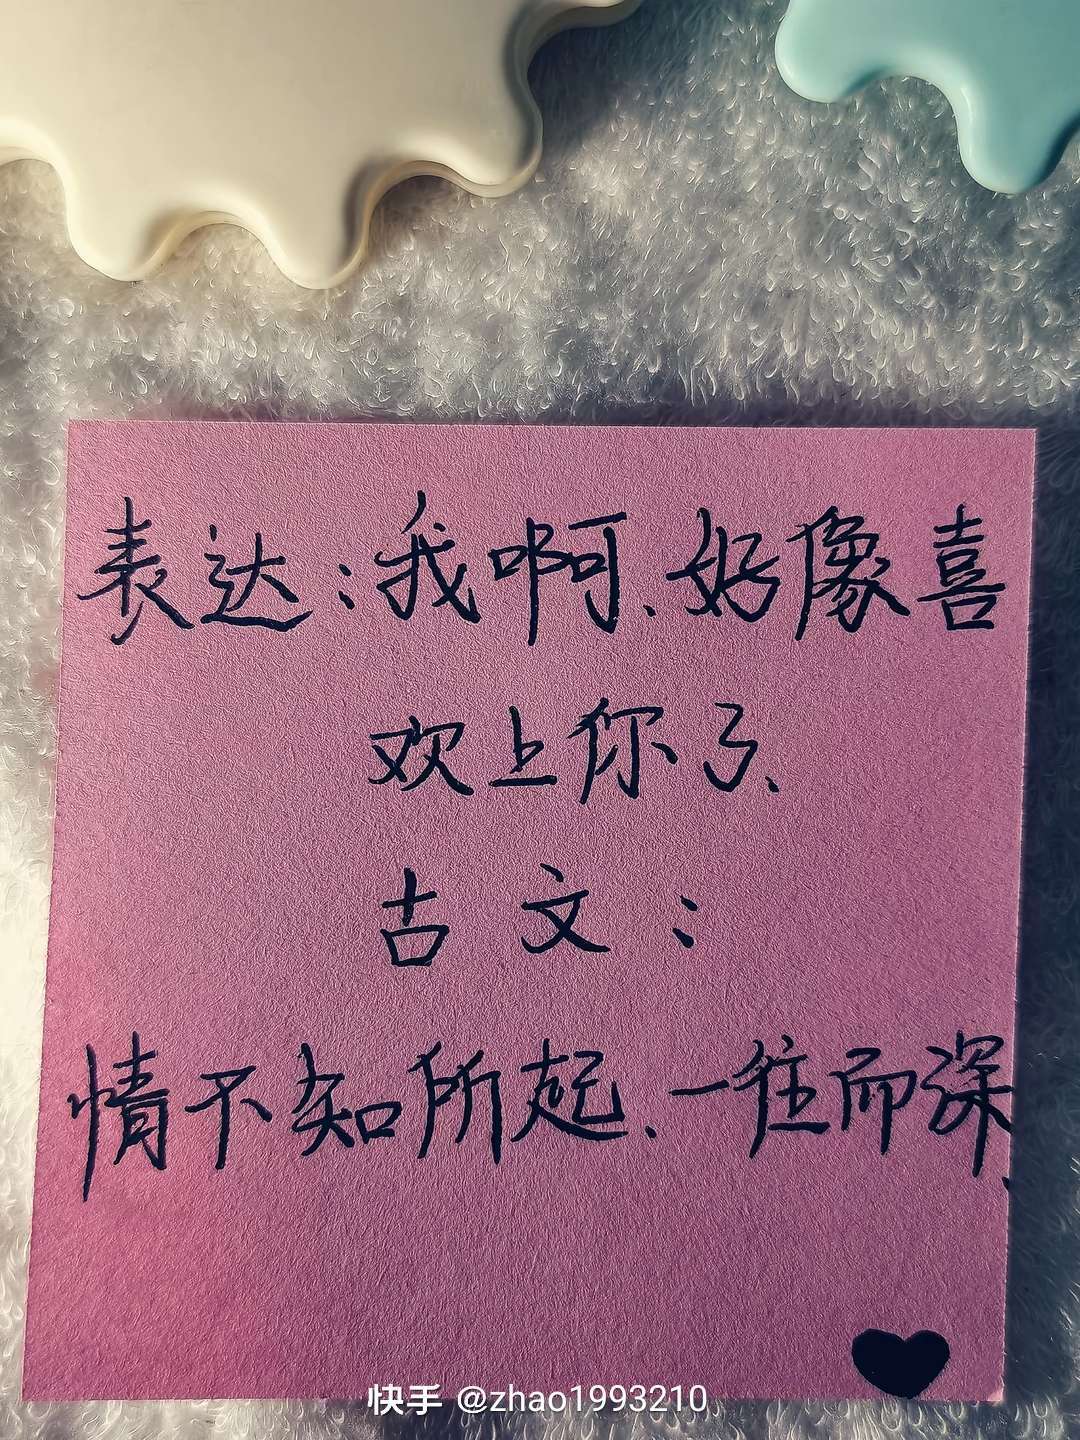 表达:我啊、好像喜
欢上你了、
古文:
情不知所起、一往而深、
快手 @zhao1993210